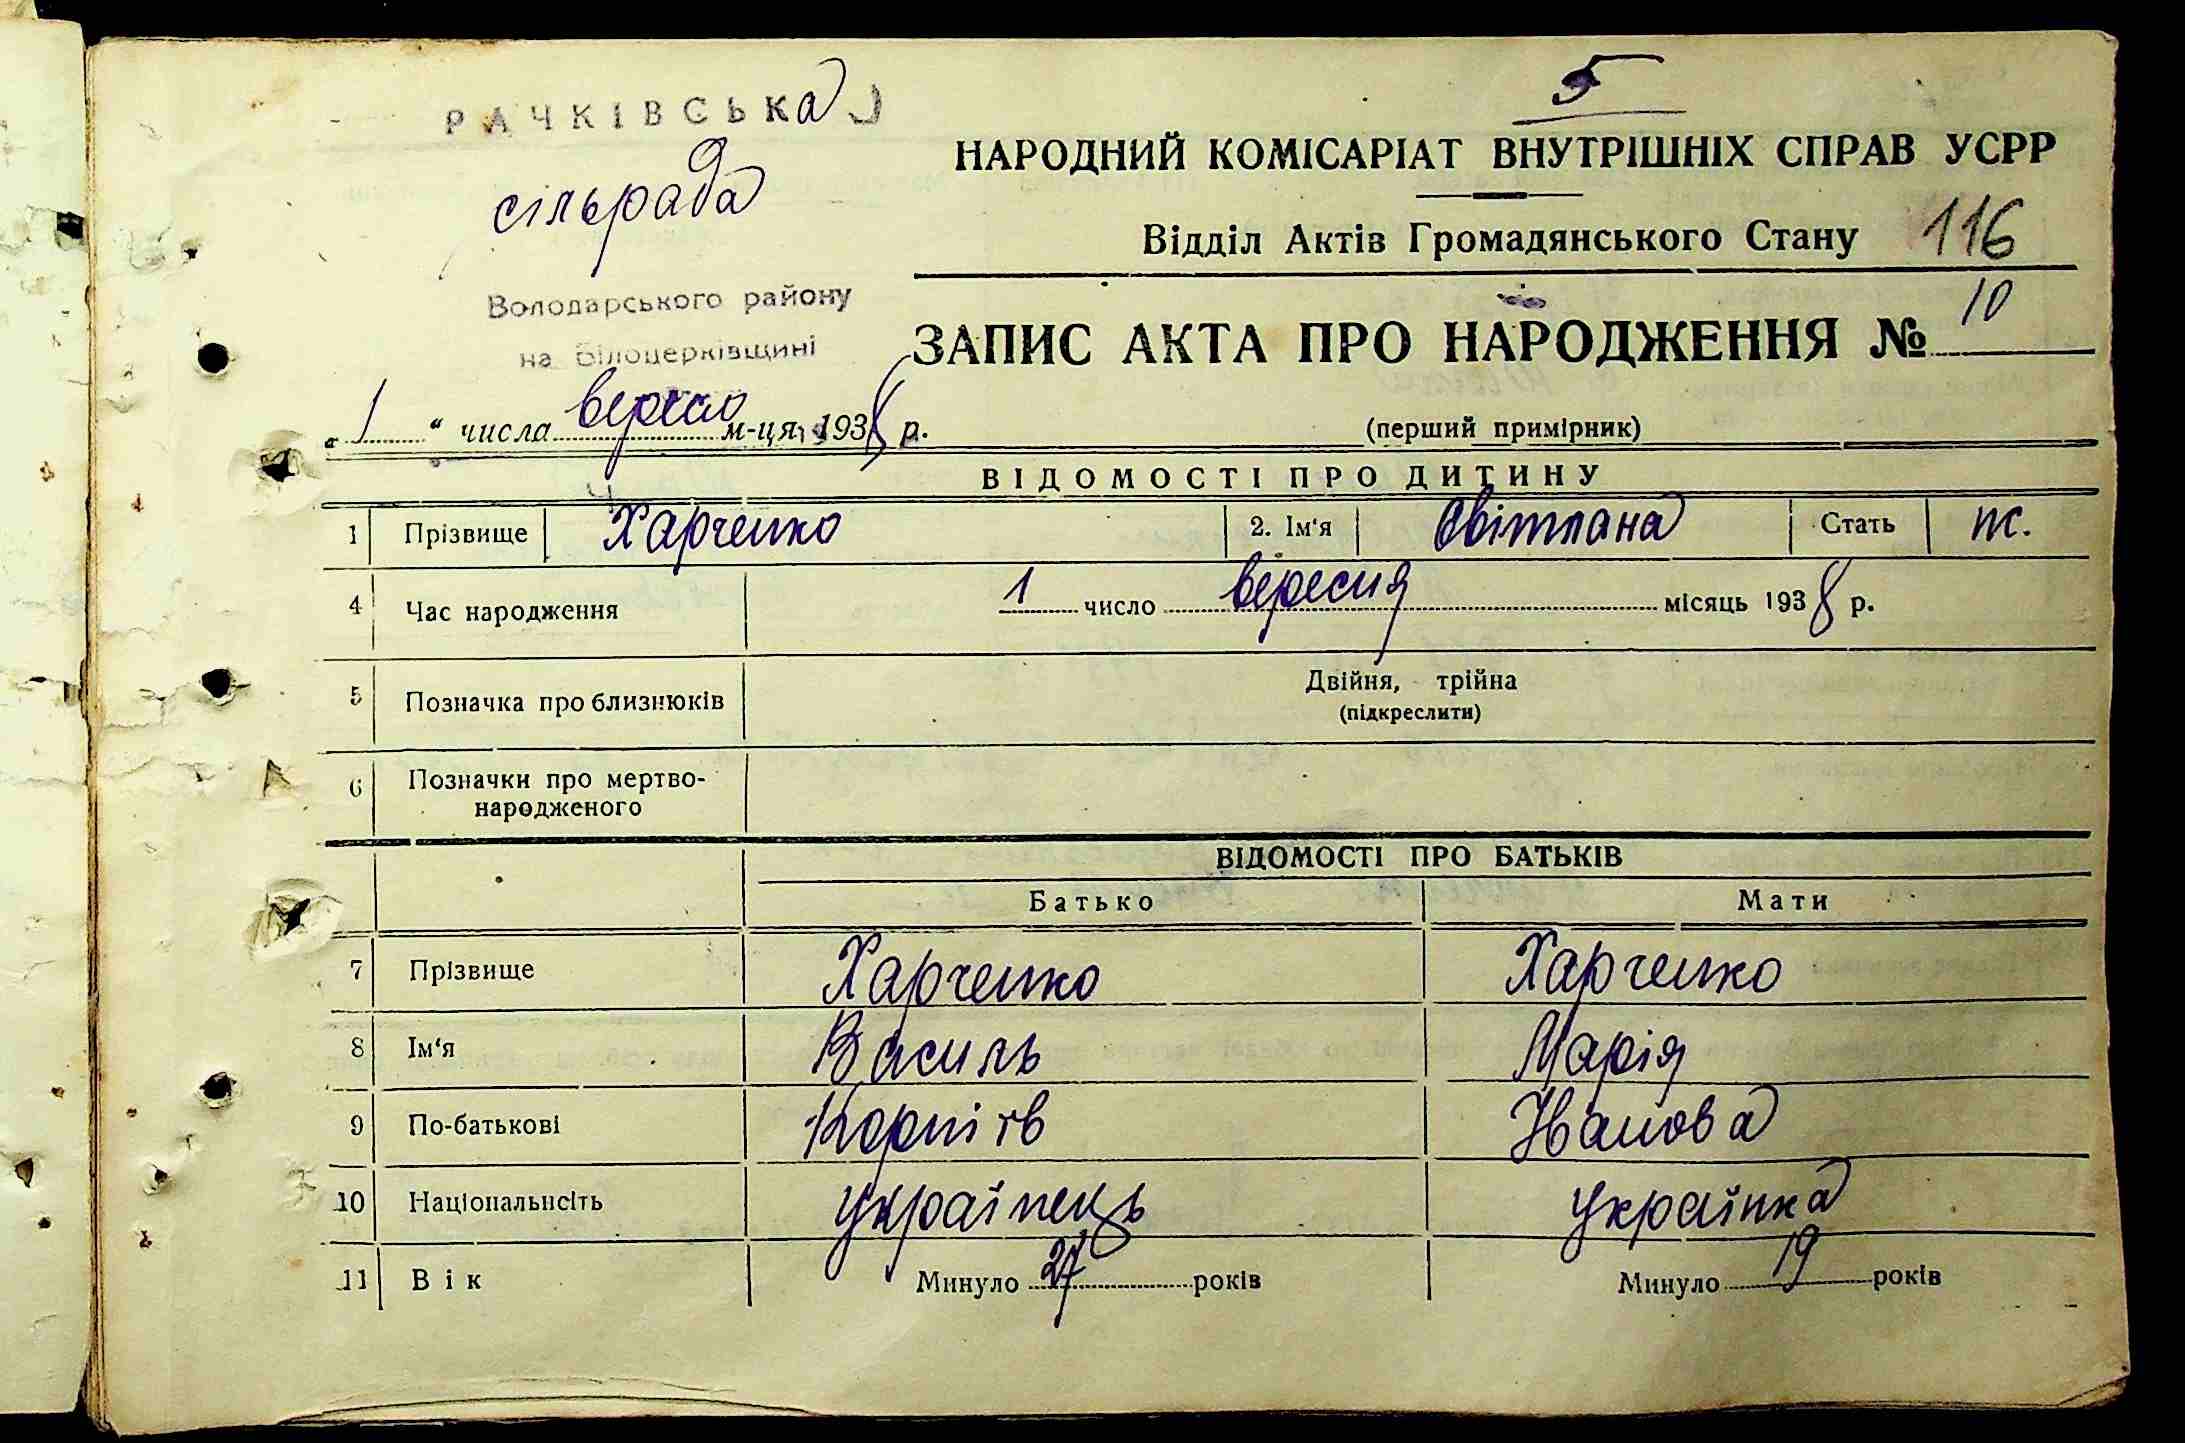 5
РАЧКІВСЬКа
сільрада
НАРОДНИЙ КОМІСАРІАТ ВНУТРІШНІХ СПРАВ УСРР
Відділ Актів Громадянського Стану 116
Володарського району
на Білоцерківщині
ЗАПИС АКТА ПРО НАРОДЖЕННЯ № 10
„1“ числа м-ця 1938 р.
(перший примірник)
ВІДОМОСТІ ПРО ДИТИНУ
1 Прізвище Харченко 2. Ім'я Світлана Стать ж.
4 Час народження 1 число вересня місяць 1938 р.
5 Позначка про близнюків Двійня, трійна
(підкреслити)
6 Позначки про мертво-
народженого
ВІДОМОСТІ ПРО БАТЬКІВ
Батько Мати
7 Прізвище Харченко Харченко
8 Ім'я Василь Марія
9 По-батькові Іванова
10 Національнсіть українець українка
11 Вік Минуло 27 років Минуло 19 років